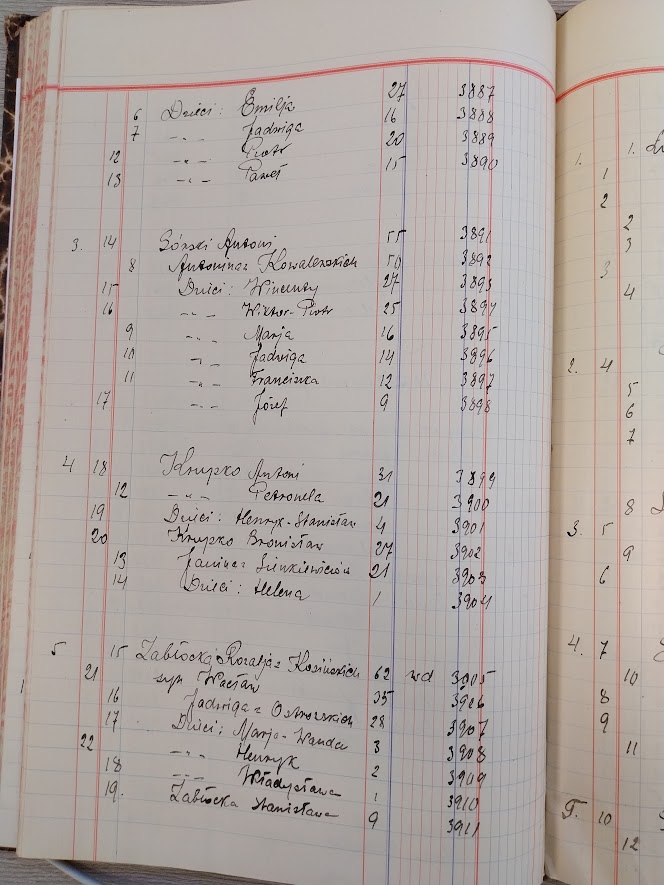 6 Dzieci: Emilja 27 3887
7 -„- Jadwiga 16 3888
12 -„- Piotr 20 3889
13 -„- Paweł 15 3890
3. 14 Górski Antoni 55 3891
8 Antonina z Kowalewskich 50 3892
15 Dzieci: Wincenty 27 3893
16 -„- Wiktor-Piotr 25 3894
9 -„- Marja 16 3895
10 -„- Jadwiga 14 3896
11 -„- Franciszka 12 3897
17 -„- Józef 9 3898
4 18 Krupko Antoni 31 3899
12 -„- Petronela 21 3900
19 Dzieci: Henryk-Stanisław 4 3901
20 Krupko Bronisław 27 3902
13 Janina z Sienkiewiczów 21 3903
14 Dzieci: Helena 1 3904
5 15 Zabłocka Rozalja z Kosińskich 62 wd 3905
21 syn Wacław 35 3906
16 Jadwiga z Ostrowskich 28 3907
17 Dzieci: Marja-Wanda 3 3908
22 -„- Henryk 2 3909
18 -„- Władysława 1 3910
19. Zabłocka Stanisława 9 3911
1. 1.
1
2
2
3
3
4
2. 4
5
6
7
8
3. 5
9
6
4. 7
10
8
9
11
10
12